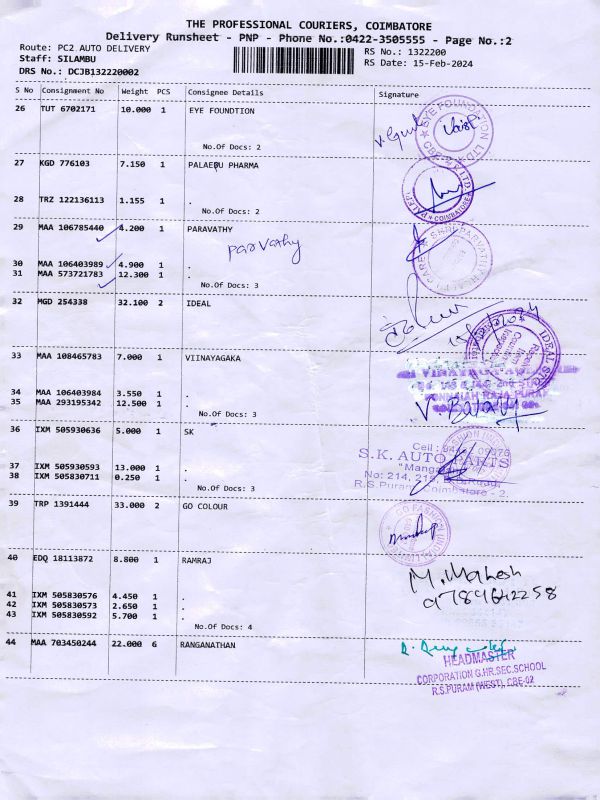 THE PROFESSIONAL COURIERS, COIMBATORE
Delivery Runsheet - PNP - Phone No.:0422-3505555 - Page No.:2
Route: PC2 AUTO DELIVERY
RS No.: 1322200
Staff: SILAMBU
RS Date: 15-Feb-2024
DRS No.: DCJB132220002
S No Consignment No Weight PCS Consignee Details Signature
26 TUT 6702171 10.000 1 EYE FOUNDTION
No.Of Docs: 2
27 KGD 776103 7.150 1 PALAEPU PHARMA
28 TRZ 122136113 1.155 1 .
No.Of Docs: 2
29 MAA 106785440 4.200 1 PARAVATHY
paravathy
30 MAA 106403989 4.900 1 .
31 MAA 573721783 12.300 1 .
No.Of Docs: 3
32 MGD 254338 32.100 2 IDEAL
33 MAA 108465783 7.000 1 VIINAYAGAKA
34 MAA 106403984 3.550 1 .
35 MAA 293195342 12.500 1 .
No.Of Docs: 3
V. Balaji
36 IXM 505930636 5.000 1 SK
S.K. AUTO PARTS
No: 214, 215,
R.S Puram, Coimbatore - 2.
37 IXM 505930593 13.000 1 .
38 IXM 505830711 0.250 1 .
No.Of Docs: 3
39 TRP 1391444 33.000 2 GO COLOUR
40 EDQ 18113872 8.800 1 RAMRAJ
M. Mahesh
9789642258
41 IXM 505830576 4.450 1 .
42 IXM 505830573 2.650 1 .
43 IXM 505830592 5.700 1 .
No.Of Docs: 4
44 MAA 703450244 22.000 6 RANGANATHAN
HEADMASTER
CORPORATION G.HR.SEC.SCHOOL
R.S.PURAM (WEST), CBE-02